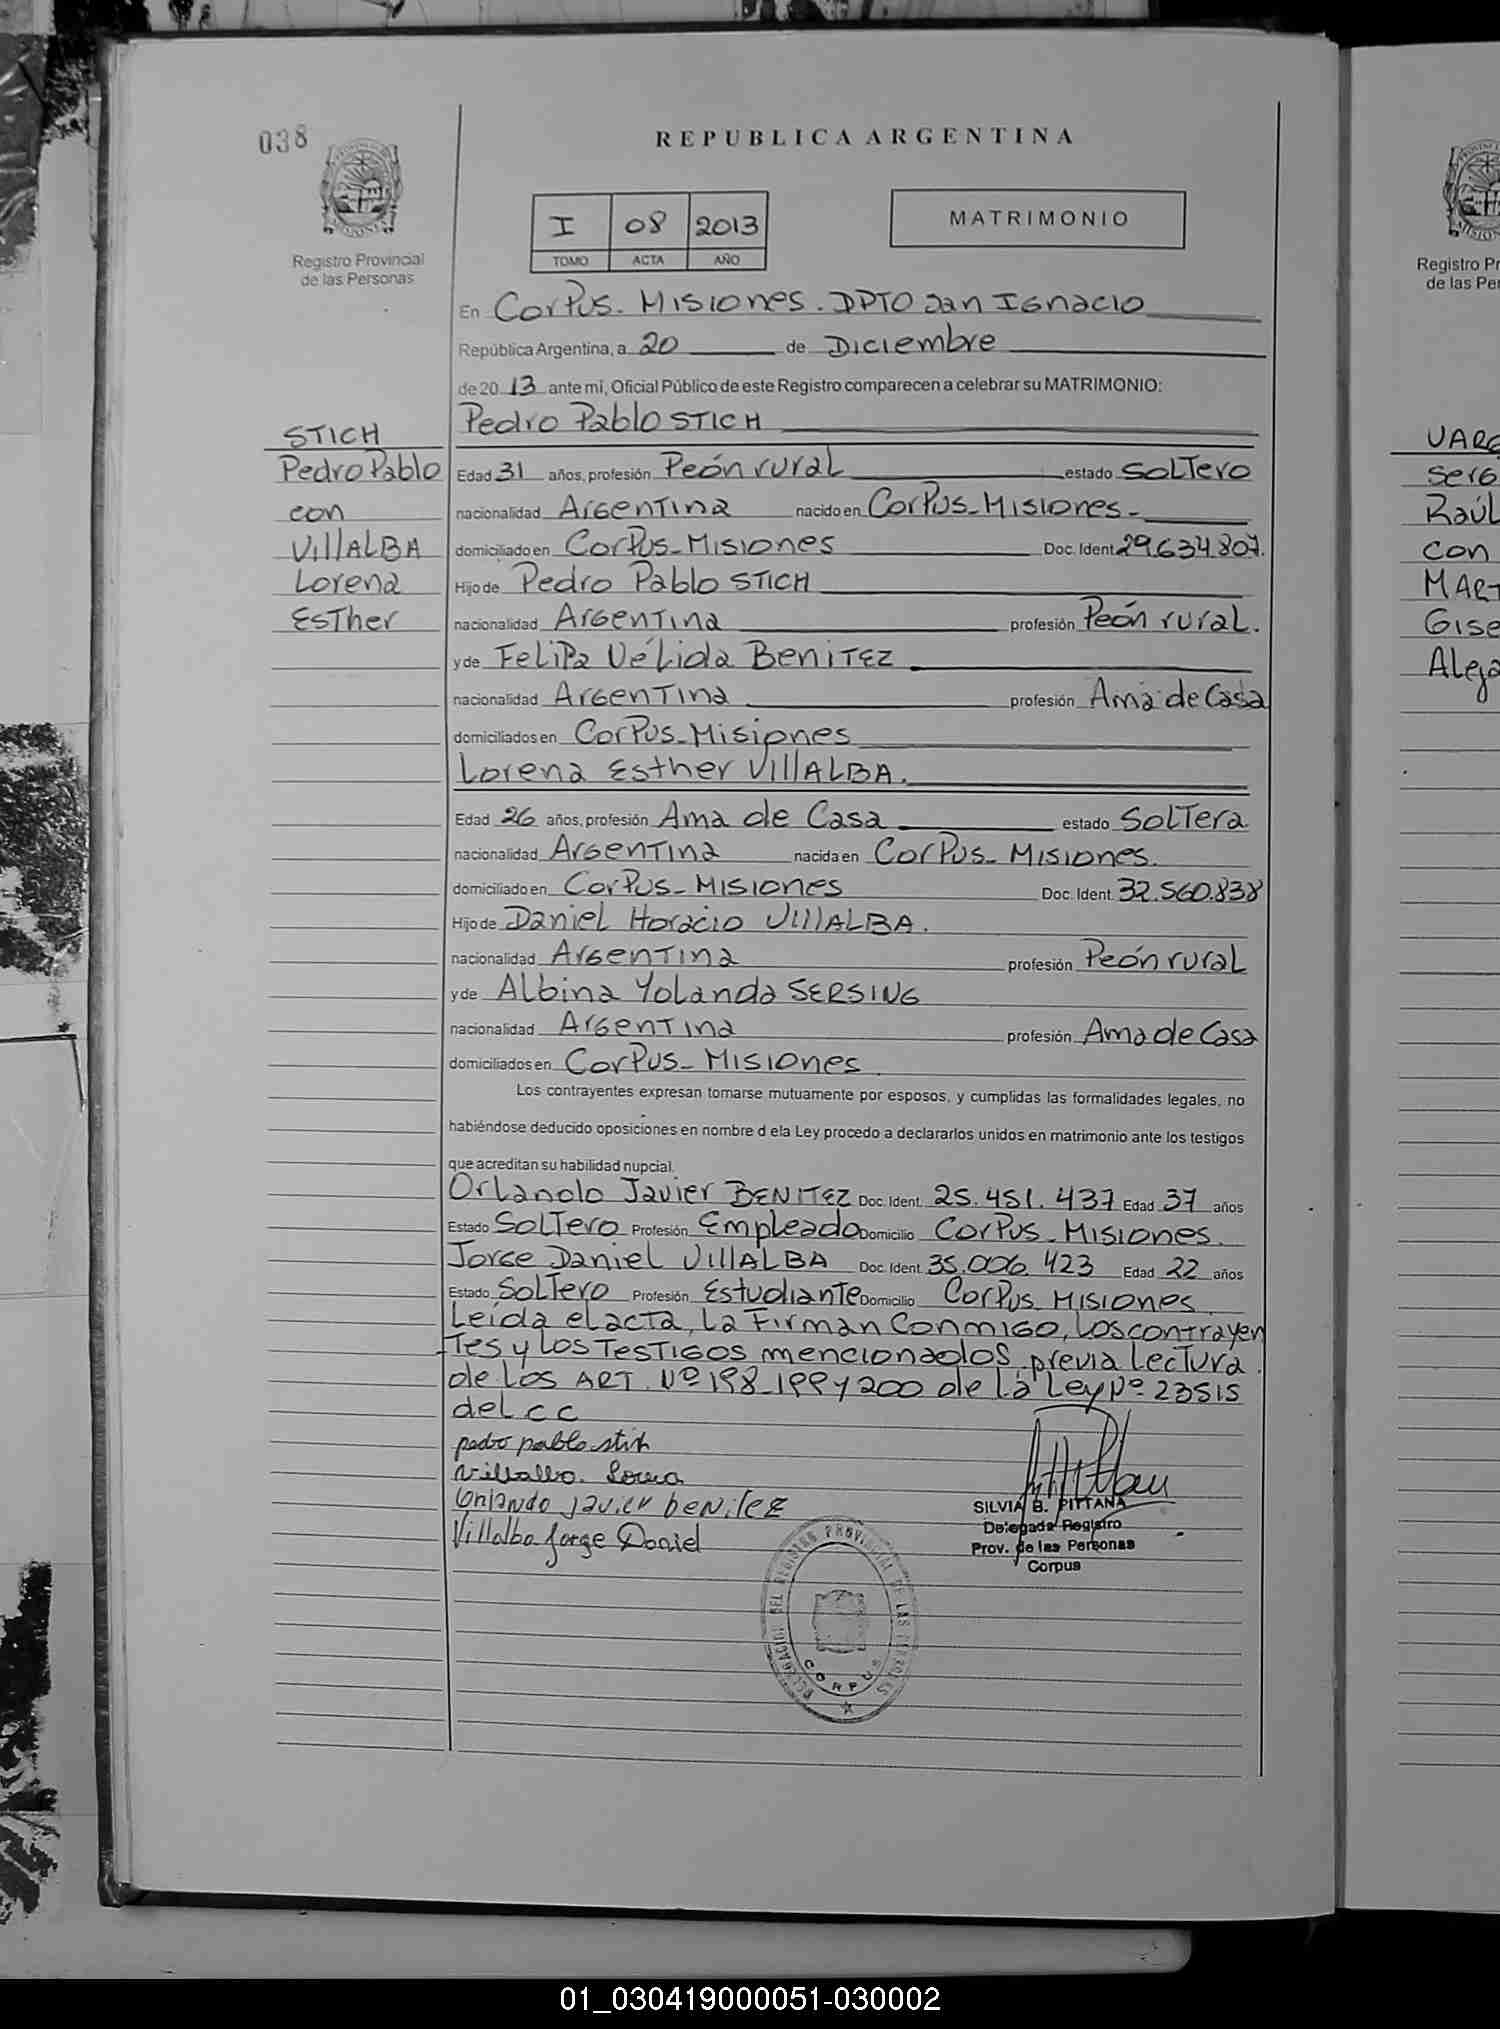 038
REPUBLICA ARGENTINA
I 08 2013
TOMO ACTA AÑO
MATRIMONIO
Registro Provincial
de las Personas
En Corpus. Misiones. DPTO San Ignacio
República Argentina, a 20 de Diciembre
de 20 13 ante mí, Oficial Público de este Registro comparecen a celebrar su MATRIMONIO:
Pedro Pablo STICH
STICH
Pedro Pablo
con
VillALBA
Lorena
Esther
Edad 31 años, profesión Peón rural estado Soltero
nacionalidad Argentina nacido en Corpus-Misiones-
domiciliado en Corpus-Misiones Doc. Ident. 29.634.807.
Hijo de Pedro Pablo STICH
nacionalidad Argentina profesión Peón rural.
y de Felipa Vélida Benitez
nacionalidad Argentina profesión Ama de Casa
domiciliados en Corpus-Misiones
Lorena Esther VillALBA.
Edad 26 años, profesión Ama de Casa estado Soltera
nacionalidad Argentina nacida en Corpus- Misiones.
domiciliado en Corpus- Misiones Doc. Ident. 32.560.838
Hijo de Daniel Horacio VillALBA.
nacionalidad Argentina profesión Peón rural
y de Albina Yolanda SERSING
nacionalidad Argentina profesión Ama de Casa
domiciliados en Corpus- Misiones
Los contrayentes expresan tomarse mutuamente por esposos, y cumplidas las formalidades legales, no
habiéndose deducido oposiciones en nombre d ela Ley procedo a declararlos unidos en matrimonio ante los testigos
que acreditan su habilidad nupcial.
Orlando Javier BENITEZ Doc. Ident. 25.451.437 Edad 37 años
Estado Soltero Profesión Empleado Domicilio Corpus- Misiones.
Jorge Daniel VillALBA Doc. Ident. 35.006.423 Edad 22 años
Estado Soltero Profesión Estudiante Domicilio Corpus Misiones.
Leída el acta, la Firman Conmigo, los contrayen
tes y los Testigos mencionados previa lectura
de los ART. Nº 198-199 y 200 de la Ley Nº 23515
del CC
pedro pablo stich
Villalba. Lorena
Orlando Javier beNitez
Villalba Jorge Daniel
SILVIA B. PITTANA
Delegada Registro
Prov. de las Personas
Corpus
DELEGACION DEL REGISTRO PROVINCIAL DE LAS PERSONAS
CORPUS
Registro Pr
de las Per
VARG
Serg
Raúl
con
MART
Gise
Aleja
01_030419000051-030002